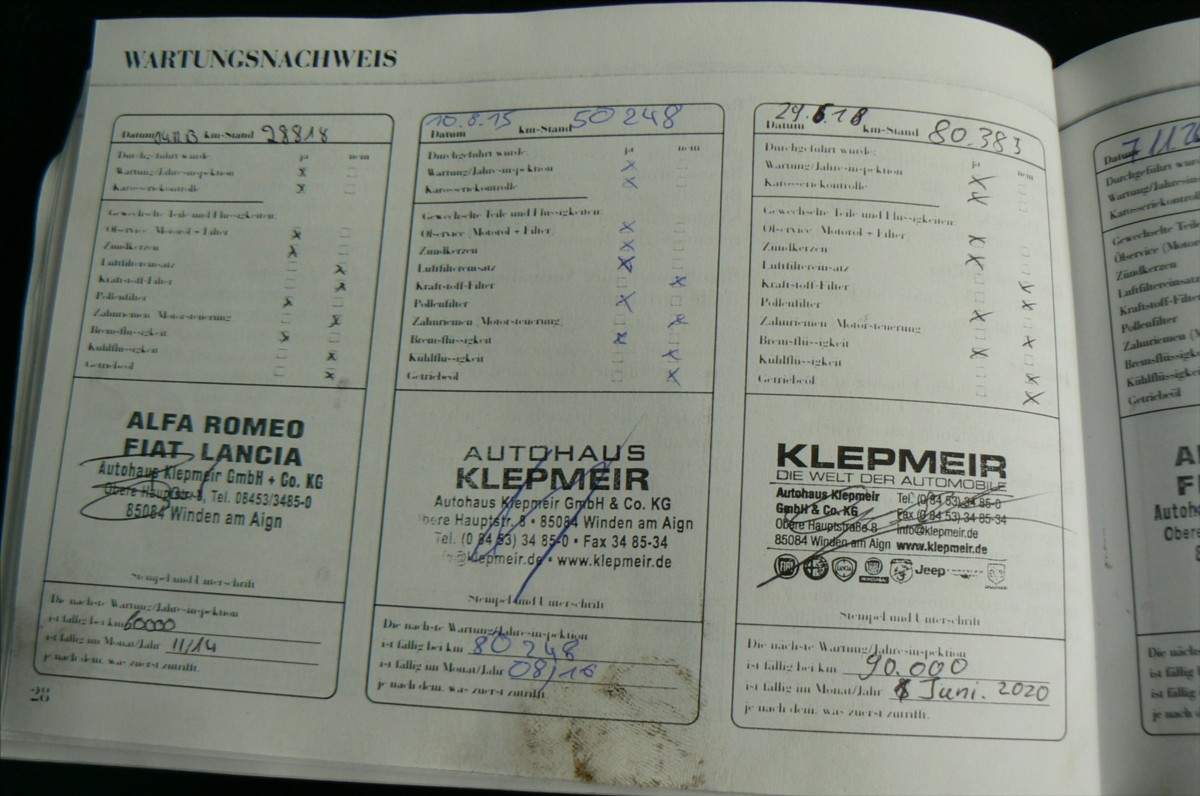 WARTUNGSNACHWEIS
Datum km-Stand 28818
Durchgeführt wurde: ja nein
Wartung/Jahresinspektion
Karosseriekontrolle
Gewechselte Teile und Flüssigkeiten:
Ölservice (Motoröl + Filter)
Zündkerzen
Luftfiltereinsatz
Kraftstoff-Filter
Pollenfilter
Zahnriemen (Motorsteuerung)
Bremsflüssigkeit
Kühlflüssigkeit
Getriebeöl
ALFA ROMEO
FIAT LANCIA
Autohaus Klepmeir GmbH + Co. KG
Obere Hauptstr. 8, Tel. 08453/3485-0
85084 Winden am Aign
Stempel und Unterschrift
Die nächste Wartung/Jahresinspektion
ist fällig bei km 60000
ist fällig im Monat/Jahr 11/14
je nach dem, was zuerst zutrifft.
28
Datum 10.8.15 km-Stand 50 248
Durchgeführt wurde: ja nein
Wartung/Jahresinspektion
Karosseriekontrolle
Gewechselte Teile und Flüssigkeiten:
Ölservice (Motoröl + Filter)
Zündkerzen
Luftfiltereinsatz
Kraftstoff-Filter
Pollenfilter
Zahnriemen (Motorsteuerung)
Bremsflüssigkeit
Kühlflüssigkeit
Getriebeöl
AUTOHAUS
KLEPMEIR
Autohaus Klepmeir GmbH & Co. KG
Obere Hauptstr. 8 • 85084 Winden am Aign
Tel. (0 84 53) 34 85-0 • Fax 34 85-34
info@klepmeir.de • www.klepmeir.de
Stempel und Unterschrift
Die nächste Wartung/Jahresinspektion
ist fällig bei km 80 248
ist fällig im Monat/Jahr 08/16
je nach dem, was zuerst zutrifft.
Datum 29.6.18 km-Stand 80.383
Durchgeführt wurde: ja nein
Wartung/Jahresinspektion
Karosseriekontrolle
Gewechselte Teile und Flüssigkeiten:
Ölservice (Motoröl + Filter)
Zündkerzen
Luftfiltereinsatz
Kraftstoff-Filter
Pollenfilter
Zahnriemen (Motorsteuerung)
Bremsflüssigkeit
Kühlflüssigkeit
Getriebeöl
KLEPMEIR
DIE WELT DER AUTOMOBILE
Autohaus Klepmeir Tel. (0 84 53) 34 85-0
GmbH & Co. KG Fax (0 84 53) 34 85-34
Obere Hauptstraße 8 info@klepmeir.de
85084 Winden am Aign www.klepmeir.de
FIAT LANCIA Jeep
Stempel und Unterschrift
Die nächste Wartung/Jahresinspektion
ist fällig bei km 90.000
ist fällig im Monat/Jahr Juni. 2020
je nach dem, was zuerst zutrifft.
Datum
Durchgeführt wur
Wartung/Jahresin
Karosseriekontrol
Gewechselte Teile
Ölservice (Moto
Zündkerzen
Luftfiltereinsatz
Kraftstoff-Filter
Pollenfilter
Zahnriemen (
Bremsflüssig
Kühlflüssigkeit
Getriebeöl
Autoh
Obere
Die näch
ist fällig
ist fällig
je nach d